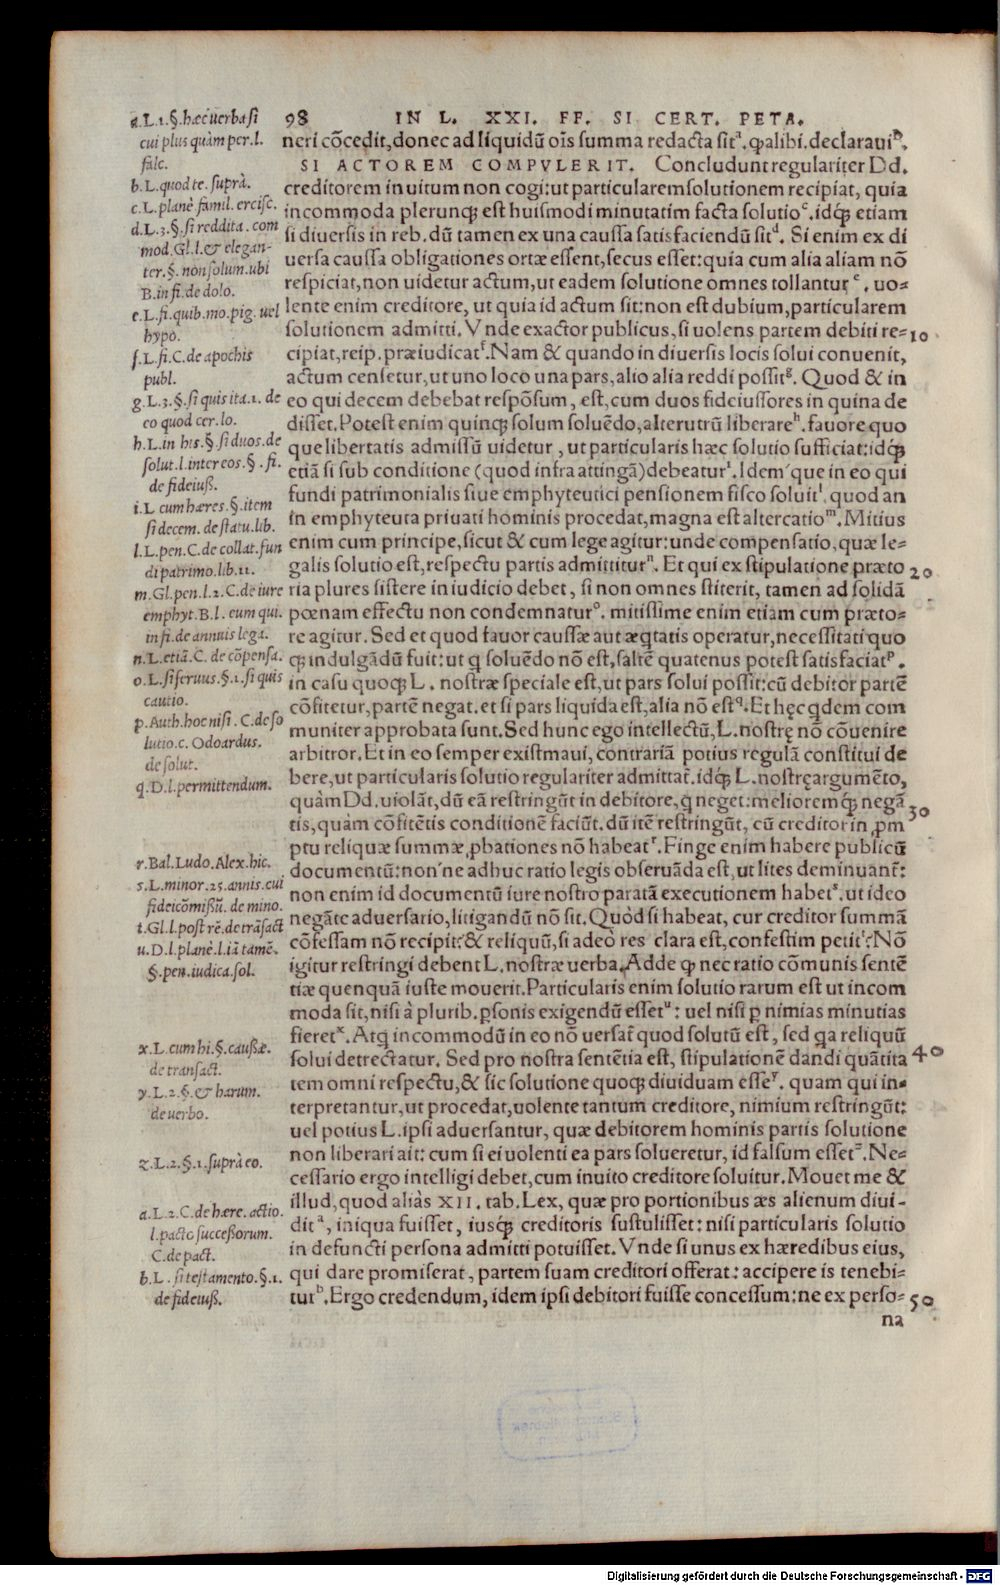 98 IN L. XXI. FF. SI CERT. PETA.
neri cõcedit, donec ad liquidũ oĩs summa redacta sitᵃ. ꝙ alibi. declarauiᵇ.
SI ACTOREM COMPVLERIT. Concludunt regulariter Dd.
creditorem inuitum non cogi: ut particularem solutionem recipiat, quia
incommoda plerunq́; est huiusmodi minutatim facta solutioᶜ. idq́; etiam
si diuersis in reb. dũ tamen ex una caussa satisfaciendũ sitᵈ. Si enim ex di
uersa caussa obligationes ortæ essent, secus esset: quia cum alia aliam nõ
respiciat, non uidetur actum, ut eadem solutione omnes tollanturᵉ. uo=
lente enim creditore, ut quia id actum sit: non est dubium, particularem
solutionem admitti. Vnde exactor publicus, si uolens partem debiti re= 10
cipiat, reip. præiudicatᶠ. Nam & quando in diuersis locis solui conuenit,
actum censetur, ut uno loco una pars, alio alia reddi possitᵍ. Quod & in
eo qui decem debebat respõsum, est, cum duos fideiussores in quina de
disset. Potest enim quinq́; solum soluẽdo, alterutrũ liberareʰ. fauore quo
que libertatis admissũ uidetur, ut particularis hæc solutio sufficiat: idq́;
etiã si sub conditione (quod infra attingã) debeaturⁱ. Idem´que in eo qui
fundi patrimonialis siue emphyteutici pensionem fisco soluitˡ. quod an
in emphyteuta priuati hominis procedat, magna est altercatioᵐ. Mitius
enim cum principe, sicut & cum lege agitur: unde compensatio, quæ le=
galis solutio est, respectu partis admittiturⁿ. Et qui ex stipulatione præto 20
ria plures sistere in iudicio debet, si non omnes stiterit, tamen ad solidã
pœnam effectu non condemnaturᵒ. mitissime enim etiam cum præto=
re agitur. Sed et quod fauor caussæ aut æq̃tatis operatur, necessitati quo
q́; indulgãdũ fuit: ut q̃ soluẽdo nõ est, saltẽ quatenus potest satisfaciatᵖ.
in casu quoq́; L. nostræ speciale est, ut pars solui possit: cũ debitor partẽ
cõfitetur, partẽ negat. et si pars liquida est, alia nõ est. Et hęc q̃dem com
muniter approbata sunt. Sed hunc ego intellectũ, L. nostrę nõ cõuenire
arbitror. Et in eo semper existmaui, contrariã potius regulã constitui de
bere, ut particularis solutio regulariter admittat̃. idq́; L. nostrę argumẽto,
quàm Dd. uiolãt, dũ eã restringũt in debitore, q̃ neget: meliorem q́; negã 30
tis, quàm cõfitẽtis conditionẽ faciũt. dũ itẽ restringũt, cũ creditor in ꝓm
ptu reliquæ summæ, ꝓbationes nõ habeatʳ. Finge enim habere publicũ
documentũ: non´ne adhuc ratio legis obseruãda est, ut lites deminuant̃:
non enim id documentũ iure nostro paratã executionem habetˢ. ut ideo
negãte aduersario, litigandũ nõ sit. Quòd si habeat, cur creditor summã
cõfessam nõ recipit? & reliquũ, si adeò res clara est, confestim petitᵗ? Nõ
igitur restringi debent L. nostræ uerba. Adde ꝙ nec ratio cõmunis sentẽ
tiæ quenquã iuste mouerit. Particularis enim solutio rarum est ut incom
moda sit, nisi à plurib. ꝑsonis exigendũ essetᵘ: uel nisi ꝑ nimias minutias
fieretˣ. Atq́; incommodũ in eo nõ uersat̃ quod solutũ est, sed q̃a reliquũ
solui detrectatur. Sed pro nostra sentẽtia est, stipulationẽ dandi quãtita 40
tem omni respectu, & sic solutione quoq́; diuiduam esseʸ. quam qui in=
terpretantur, ut procedat, uolente tantum creditore, nimium restringũt:
uel potius L. ipsi aduersantur, quæ debitorem hominis partis solutione
non liberari ait: cum si ei uolenti ea pars solueretur, id falsum essetᶻ. Ne=
cessario ergo intelligi debet, cum inuito creditore soluitur. Mouet me &
illud, quod aliàs XII. tab. Lex, quæ pro portionibus æs alienum diui-
ditᵃ, iniqua fuisset, iusq́; creditoris sustulisset: nisi particularis solutio
in defuncti persona admitti potuisset. Vnde si unus ex hæredibus eius,
qui dare promiserat, partem suam creditori offerat: accipere is tenebi=
turᵇ. Ergo credendum, idem ipsi debitori fuisse concessum: ne ex perso= 50
na
a. L. 1. §. hæc uerba si
cui plus quàm per. l.
falc.
b. L. quod te. suprà.
c. L. planè famil. ercisc.
d. L. 3. §. si reddita. com
mod. Gl. l. & elegan-
ter. §. non solum. ubi
B. in fi. de dolo.
e. L. fi. quib. mo. pig. uel
hypo.
f. L. fi. C. de apochis
publ.
g. L. 3. §. si quis ita. 1. de
eo quod cer. lo.
h. L. in his. §. si duos. de
solut. l. inter eos. §. fi.
de fideiuss.
i. L cum hæres. §. item
si decem. de statu. lib.
l. L. pen. C. de collat. fun
di patrimo. lib. 11.
m. Gl. pen. l. 2. C. de iure
emphyt. B. l. cum qui.
in fi. de annuis lega.
n. L. etiã. C. de cõpensa.
o. L. si seruus. §. 1. si quis
cautio.
p. Auth. hoc nisi. C. de so
lutio. c. Odoardus.
de solut.
q. D. l. permittendum.
r. Bal. Ludo. Alex. hic.
s. L. minor. 25. annis. cui
fideicõmissũ. de mino.
t. Gl. l. post rẽ. de trãsact
u. D. l. planè. l. iã tamẽ.
§. pen. iudica. sol.
x. L. cum hi. §. caussæ.
de transact.
y. L. 2. §. & harum.
de uerbo.
z. L. 2. §. 1. suprà eo.
a. L. 2. C. de hære. actio.
l. pacto successorum.
C. de pact.
b. L. si testamento. §. 1.
de fideiuss.
Digitalisierung gefördert durch die Deutsche Forschungsgemeinschaft - DFG